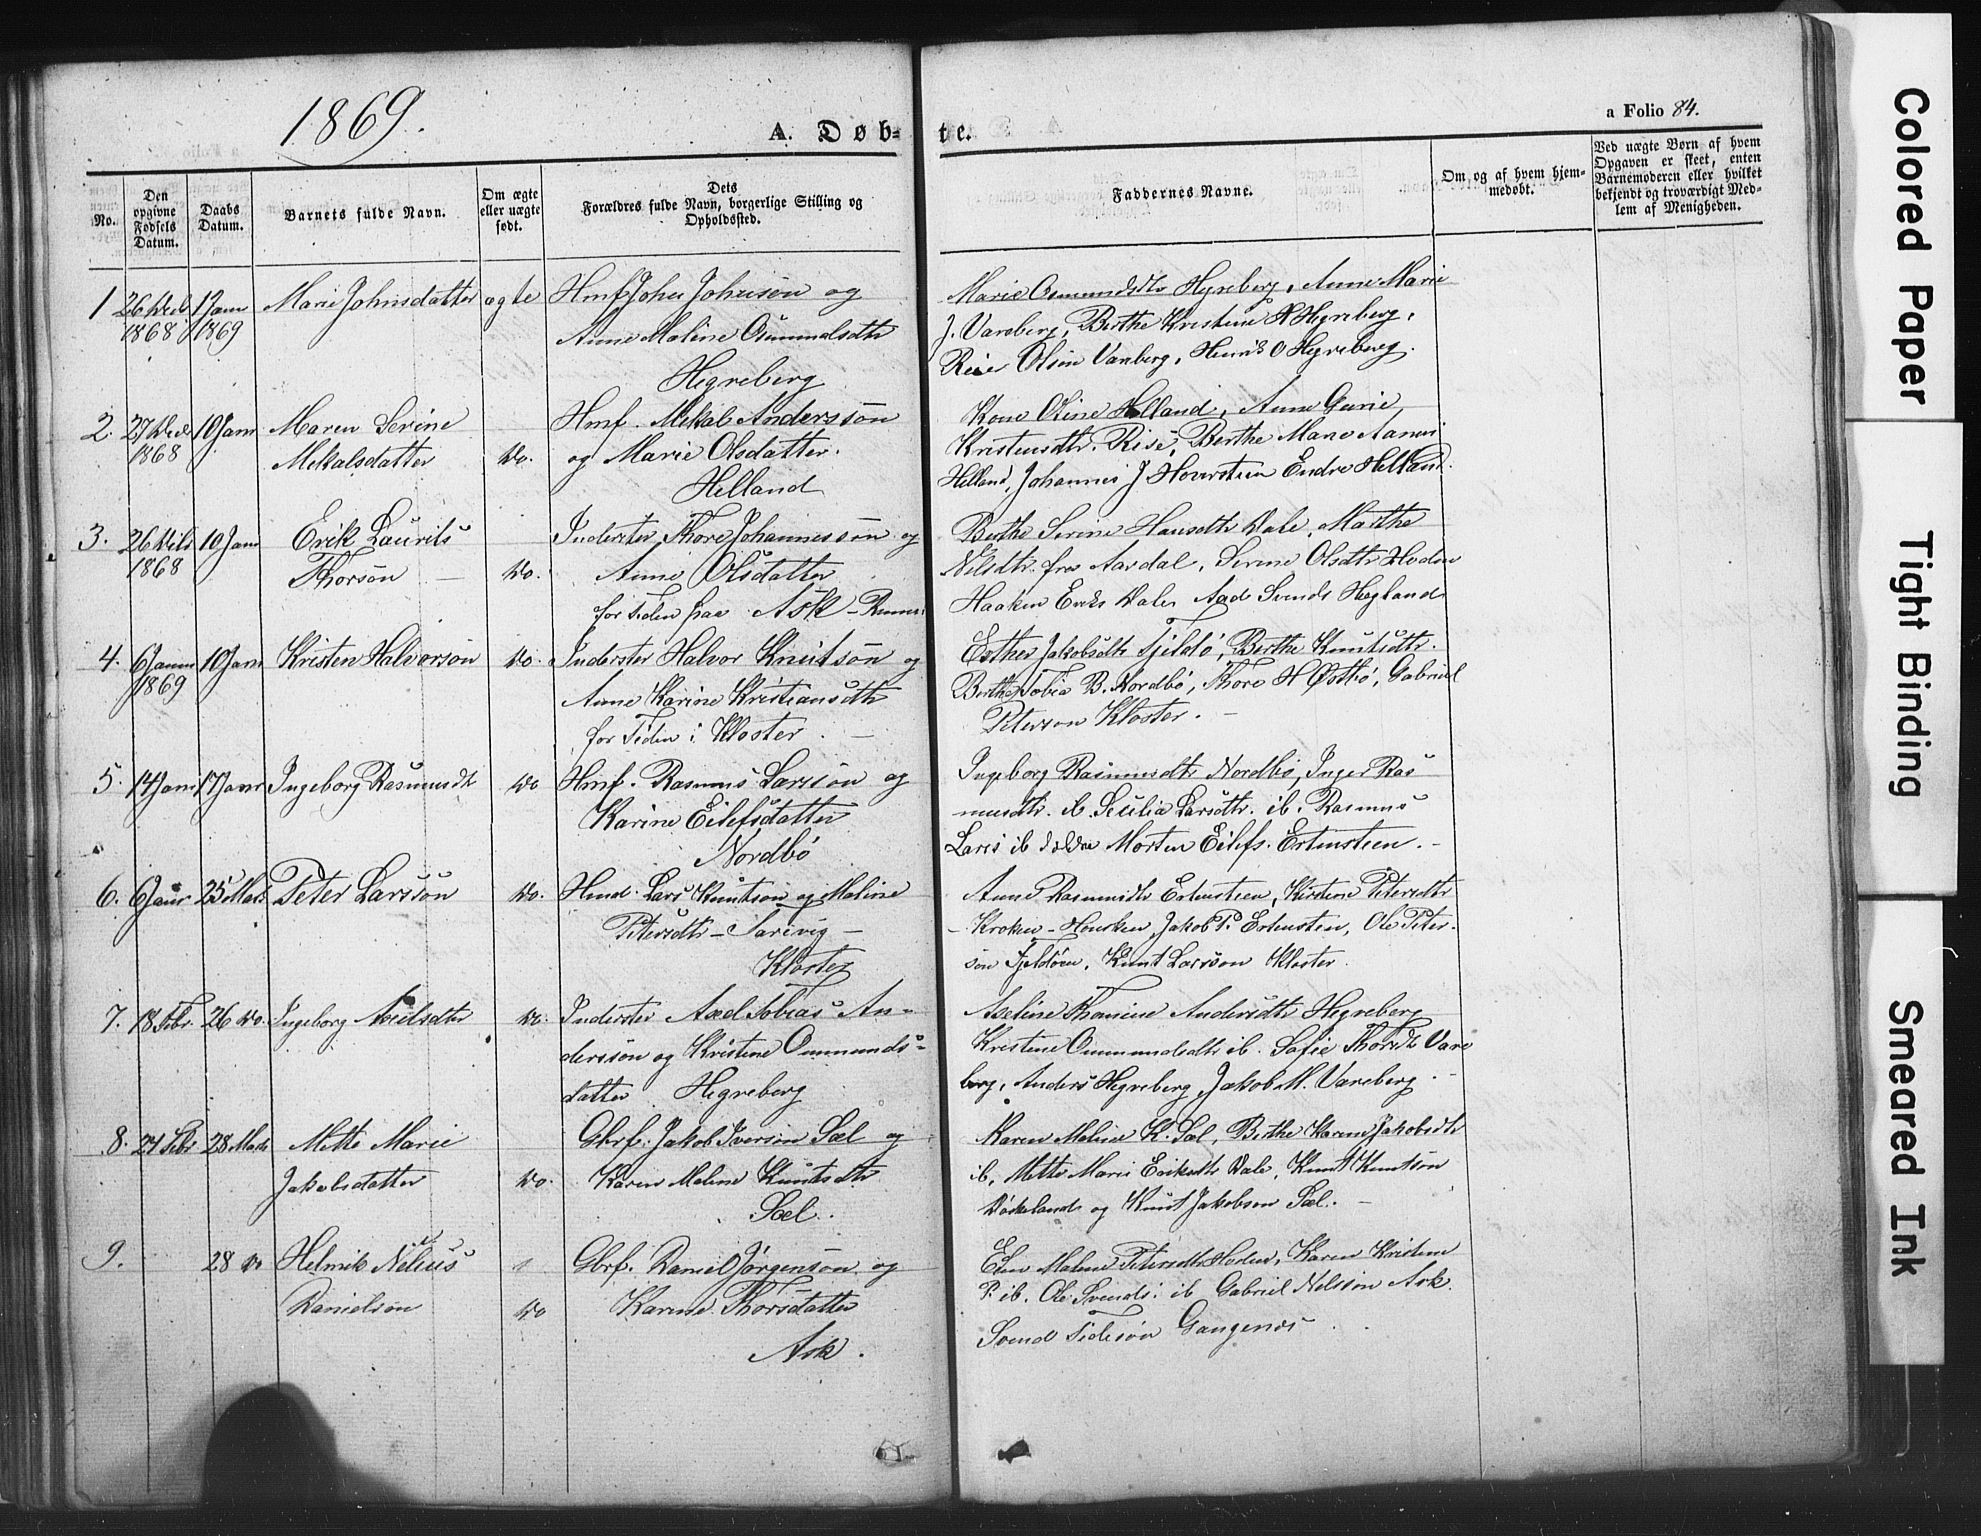 1869.
A. Døb-
te.
a Folio 84.
No.
Den opgivne Fødsels Datum.
Daabs Datum.
Barnets fulde Navn.
Om ægte eller uægte født.
Dets
Forældres fulde Navn, borgerlige Stilling og
Opholdssted.
Faddernes Navne.
Om og af hvem hjem-
medøbt.
Ved uægte Børn af hvem
Opgaven er skeet, enten
Barnemoderen eller hvilket
bekjendt og troværdigt Med-
lem af Menigheden.
1 26 Decb. 1868 1 Janr 1869 Marie Johnsdatter ægte Hmf John Johnson og
Anne Maline Osmundsdtr
Hegreberg
Marie Osmundsdtr Hegreberg, Anne Marie
J. Vareberg, Berthe Kristine Hegreberg,
Reier Olsen Vareberg, Henrik O Hegreberg.
2. 27 Decb 1868 10 Janr Maren Serine
Mikalsdatter Do. Hmf. Mikal Andersson
og Marie Olsdatter.
Helland
Kone Oline Helland, Anne Gurie
Kristensdtr. Berthe Marie
Helland, Johannes J Endre Helland.
3. 26 Decb 1868 10 Janr Erik Laurits
Thorsøn Do. Inderster Thore Johannessøn og
Anne Olsdatter
for Tiden paa Ask
Berthe Serine Hansdtr Dale, Marthe
Nilsdtr. fra Aardal, Serine Olsdtr Hodne
Haaken Eriks Dale, Aad Svends Hegland
4. 6 Janr 1869 10 Janr Kristen Halvorsøn Do. Inderster Halvor Knutsøn og
Anne Karine Kristiansdtr
for Tiden i Kloster.
Esther Jakobsdtr Fjeldø, Berthe Knutsdtr.
Berthe Tobia B. Nordbø, Thore H Østbø, Gabriel
Peterson Kloster.
5. 14 Janr 17 Janr Ingeborg Rasmusdtr Do Hmf. Rasmus Larsson og
Karine Eilefsdatter
Nordbø
Ingeborg Rasmusdtr Nordbø, Inger Ras
musdtr. ib. Sicilia Larsdtr. ib. Rasmus
Lars ib Morten Eilefs. Ertensteen.
6. 6 Janr 25 Marts Peter Larsson Do. Lars Knutson og Maline
Petersdtr
Kloster
Anne Rasmusdtr Ertensteen, Kirstine Petersdtr
Kroken - Housken, Jakob P. Ertensteen, Ole Peter-
son Fjeldøen, Knut Larsson Kloster.
7. 18 Febr. 26 Do. Ingeborg Axelsdtr Do. Inderster Axel Tobias An-
dersson og Kristine Ommunds-
datter Hegreberg
Axeline Thomine Andersdtr Hegreberg
Kristine Ommundsdtr ib. Sofie Thorsdtr Vare
berg, Anders Hegreberg, Jakob M. Vareberg.
8. 24 Febr 28 Marts Mette Marie
Jakobsdatter Do. Gbrf. Jakob Iverson Sæl og
Karen Maline Knutsdtr
Sæl.
Karen Maline K. Sæl, Berthe Karine Jakobsdtr
ib, Mette Marie Eriksdtr Dale, Knut Knutson
og Knut Jakobsen Sæl.
9. 28 Do Helmik Nelius
Danielson Do Gbrf. Daniel Jørgenson og
Karine Thorsdatter
Ask.
Elen Maline Petersdtr Hodne, Karen Kristine
P. ib. Ole Svends. ib Gabriel Nilsson Ask.
Svend
Colored Paper
Tight Binding
Smeared Ink